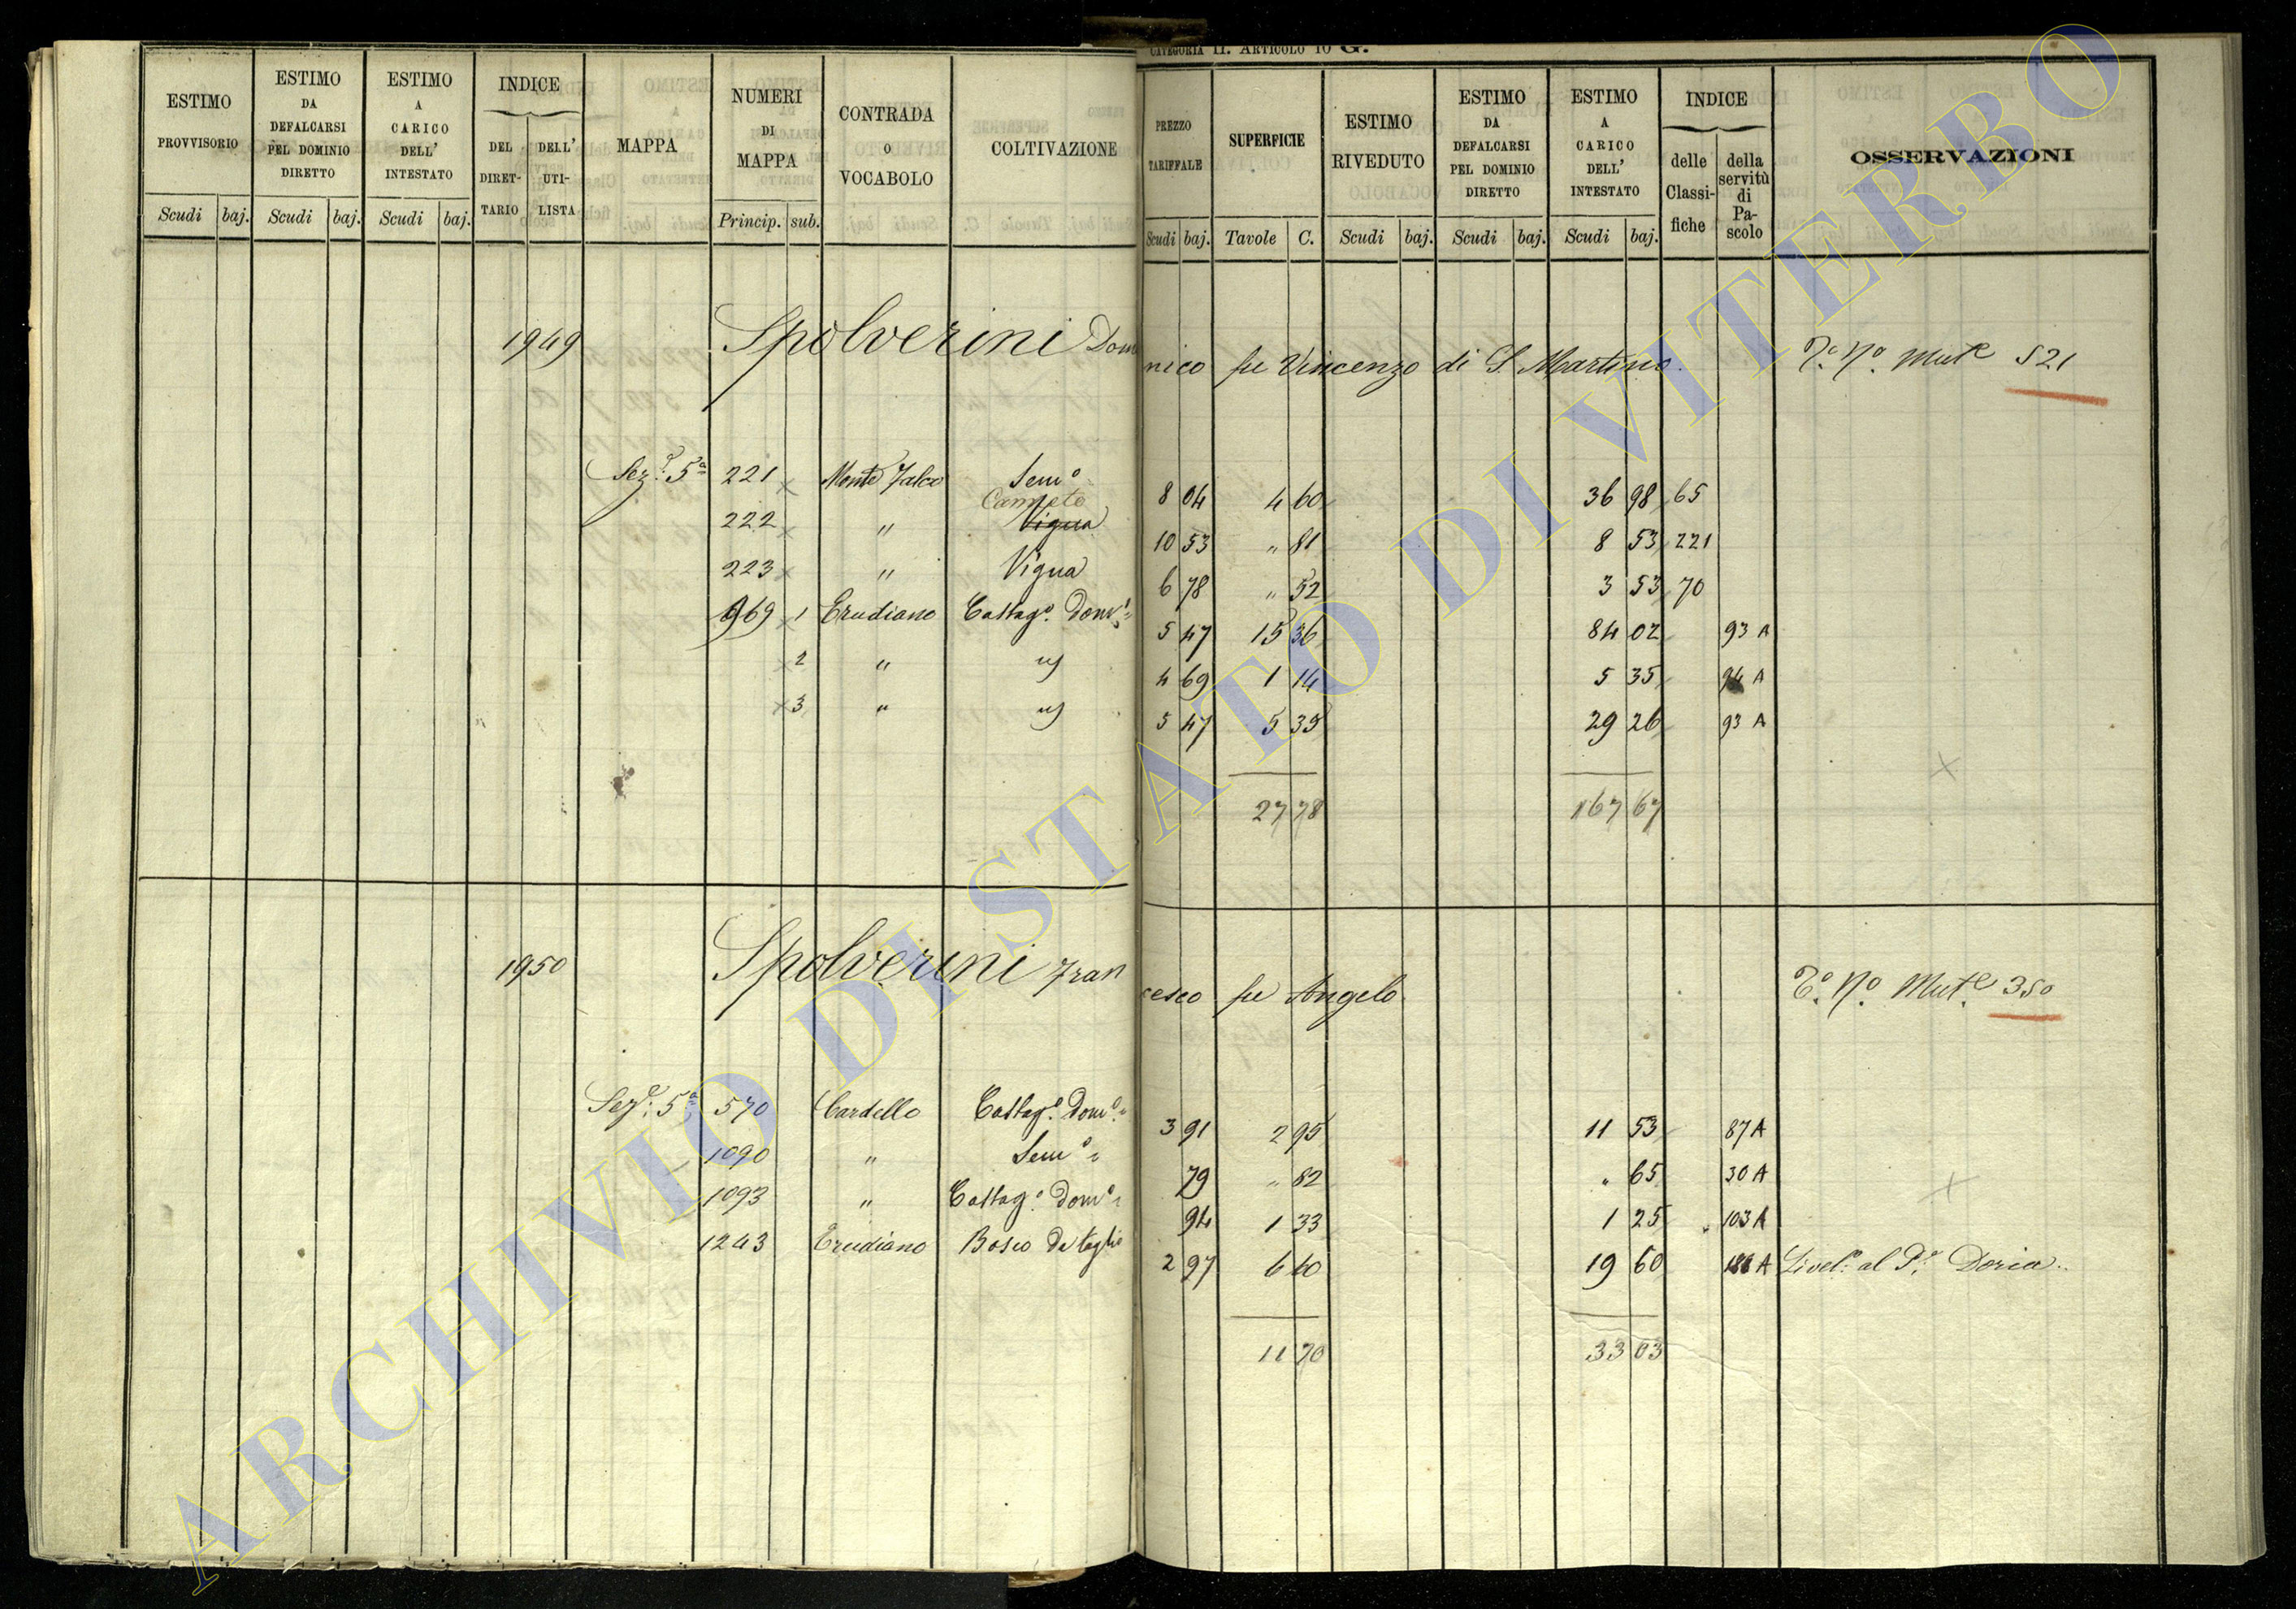 CATEGORIA II. ARTICOLO 10 G.
ESTIMO PROVVISORIO Scudi baj.
ESTIMO DA DEFALCARSI PEL DOMINIO DIRETTO Scudi baj.
ESTIMO A CARICO DELL' INTESTATO Scudi baj.
INDICE DEL DIRET-TARIO DELL' UTI-LISTA
MAPPA
NUMERI DI MAPPA Princip. sub.
CONTRADA O VOCABOLO
COLTIVAZIONE
PREZZO TARIFFALE Scudi baj.
SUPERFICIE Tavole C.
ESTIMO RIVEDUTO Scudi baj.
ESTIMO DA DEFALCARSI PEL DOMINIO DIRETTO Scudi baj.
ESTIMO A CARICO DELL' INTESTATO Scudi baj.
INDICE delle Classi-fiche della servitù di Pa-scolo
OSSERVAZIONI
1949 Spolverini Dome nico fu Vincenzo di S. Martino. Mut.e 521
Sez.e 5a 221 x Monte Falco Sem.o 8 04 4 60 36 98 65
222 x " Canneto Vigna 10 53 " 81 8 53 221
223 x " Vigna 6 78 " 52 3 53 70
969 x 1 Erudiano Castag.o Dom.o 5 47 15 36 84 02 93 A
x 2 " " 4 69 1 14 5 35 94 A
x 3 " " 5 47 5 35 29 26 93 A
x
27 78 167 67
1950 Spolverini Fran cesco fu Angelo T.o N.o Mut.e 350
Sez.e 5a 570 Cardello Castag.o Dom.o 3 91 2 95 11 53 87 A
1090 " Sem.o 79 " 82 " 65 30 A
1093 " Castag.o Dom.o 94 1 33 1 25 103 A
1243 Erudiano Bosco da taglio 2 97 6 60 19 60 A Livel.o al P.e Doria
x
11 70 33 03
ARCHIVIO DI STATO DI VITERBO